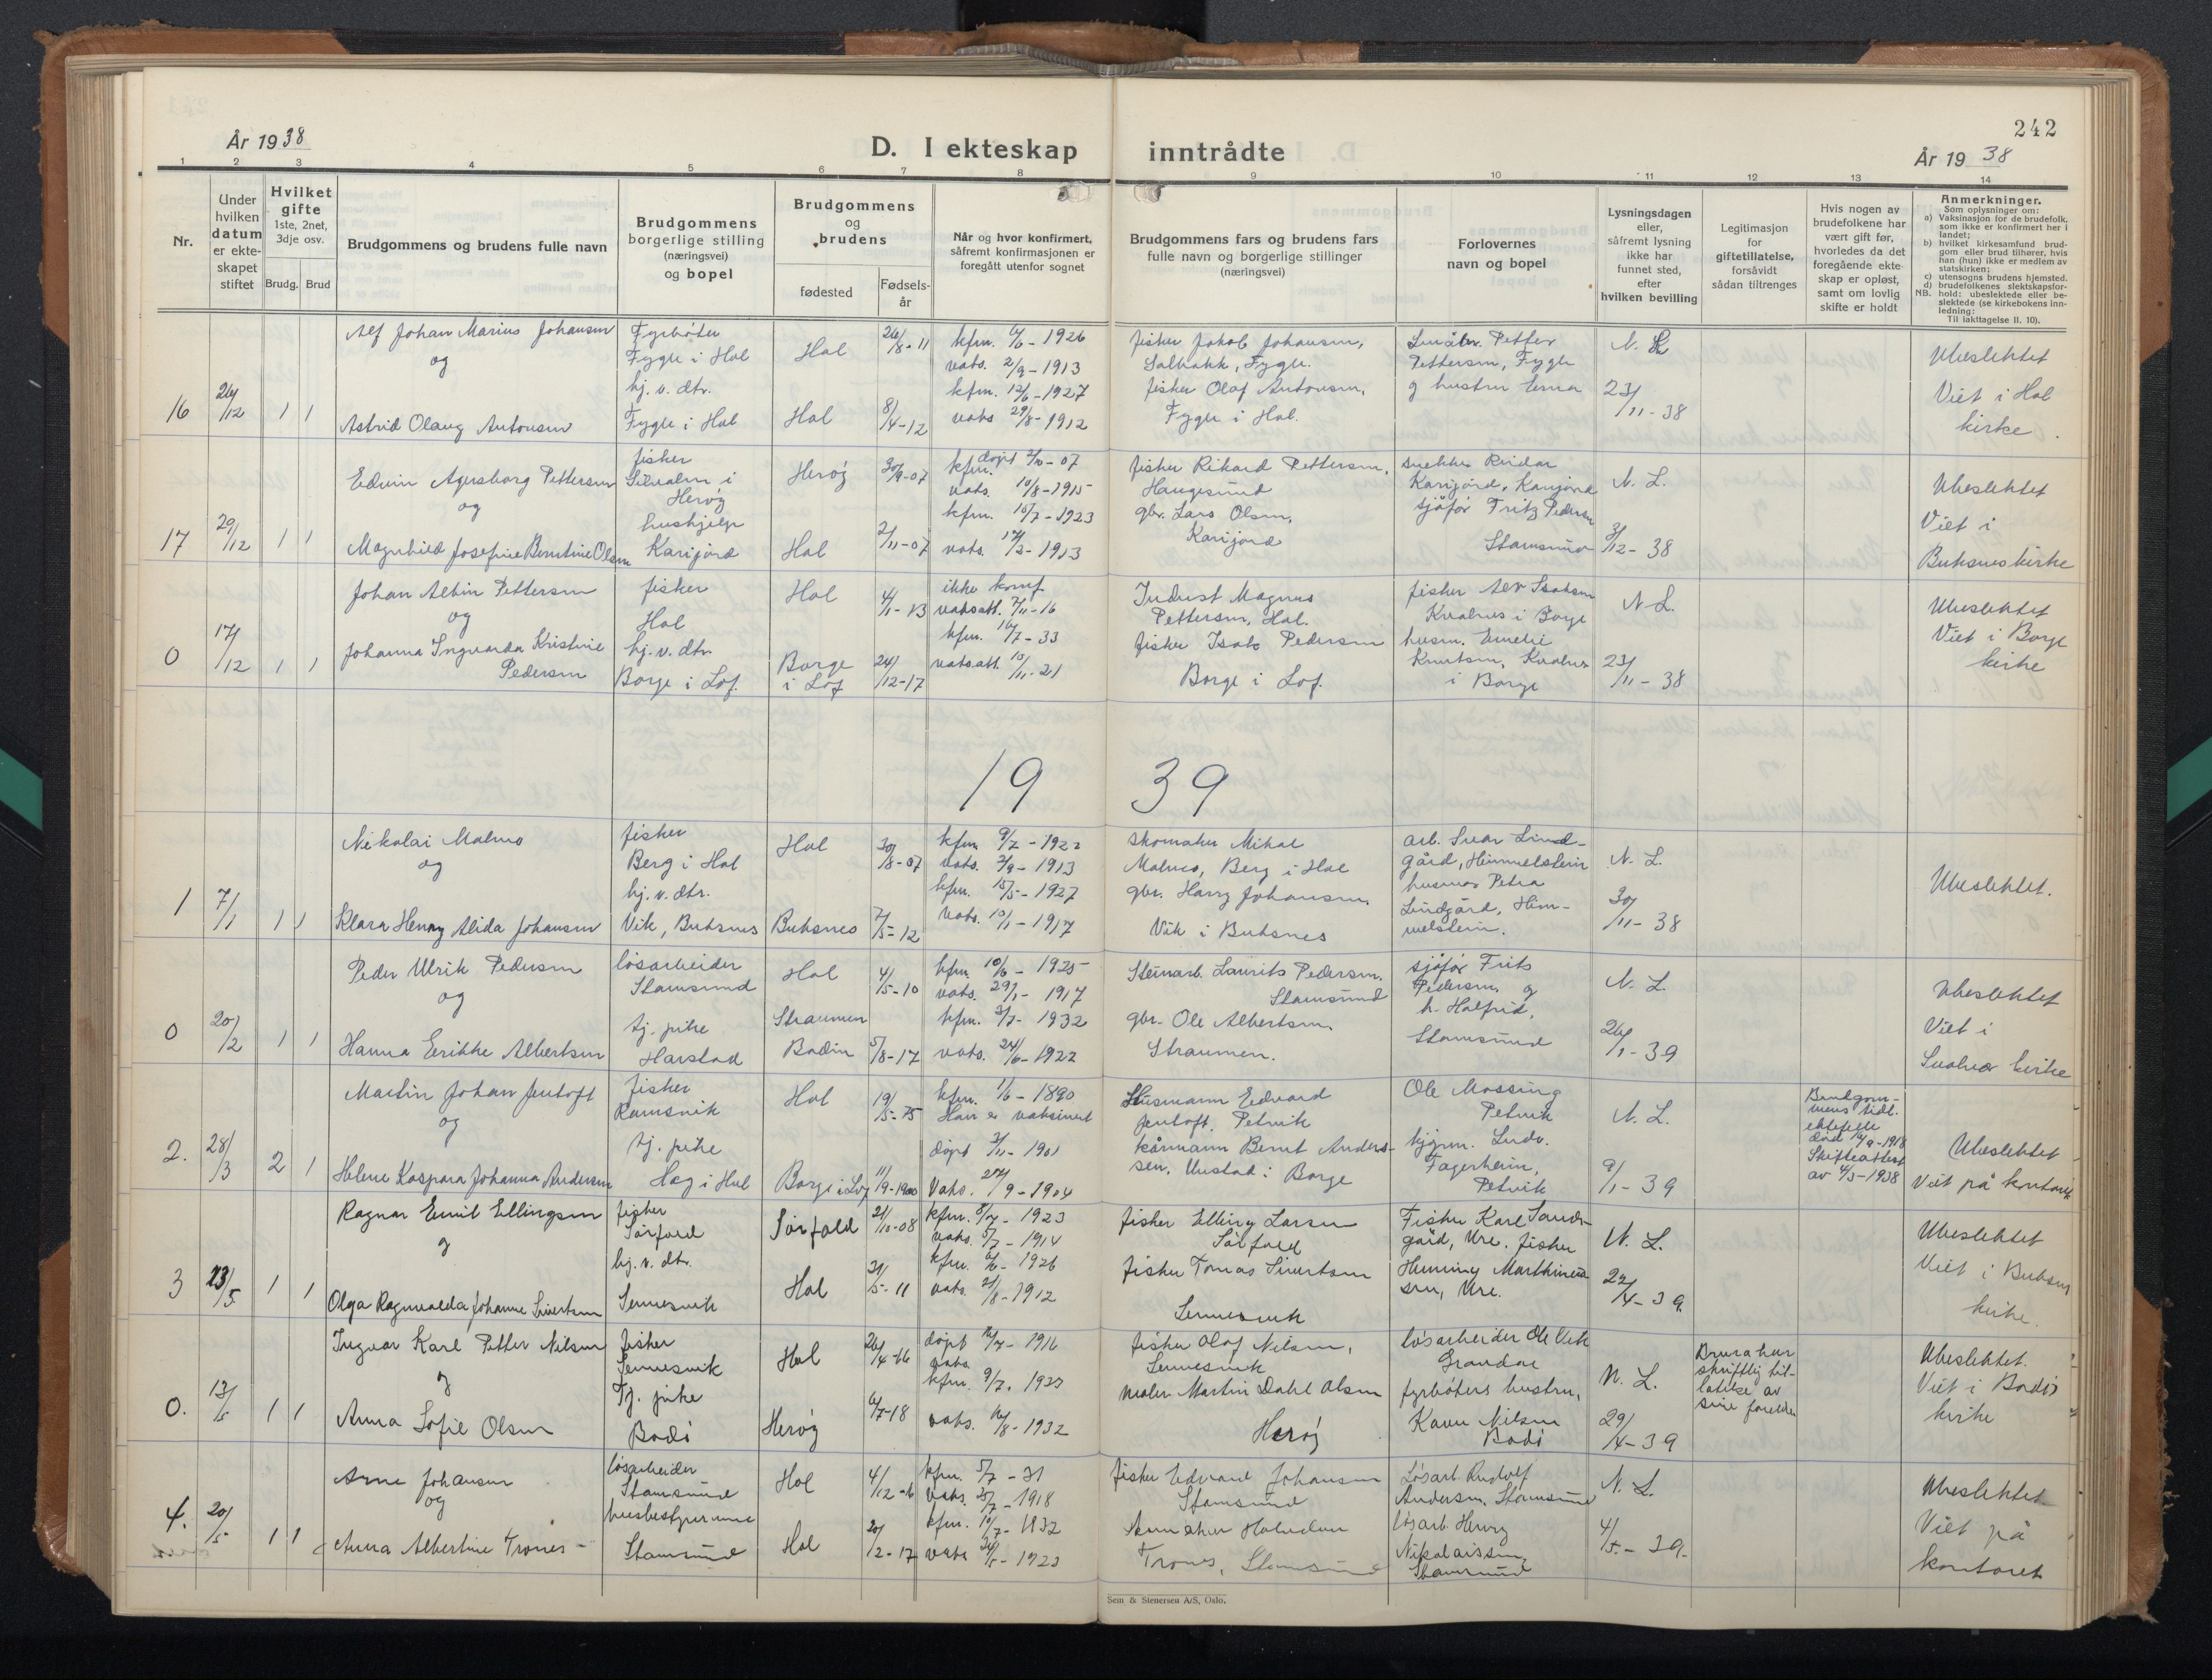 242
År 1938
D. I ekteskap inntrådte
År 1938
1 2 3 4 5 6 7 8 9 10 11 12 13 14
Nr.
Under
hvilken
datum
er ekte-
skapet
stiftet
Hvilket
gifte
1ste, 2net,
3dje osv.
Brudg. Brud
Brudgommens og brudens fulle navn
Brudgommens
borgerlige stilling
(næringsvei)
og bopel
Brudgommens
og
brudens
fødested
Fødsels-
år
Når og hvor konfirmert,
såfremt konfirmasjonen er
foregått utenfor sognet
Brudgommens fars og brudens fars
fulle navn og borgerlige stillinger
(næringsvei)
Forlovernes
navn og bopel
Lysningsdagen
eller,
såfremt lysning
ikke har
funnet sted,
efter
hvilken bevilling
Legitimasjon
for
giftetillatelse,
forsåvidt
sådan tiltrenges
Hvis nogen av
brudefolkene har
vært gift før,
hvorledes da det
foregående ekte-
skap er opløst,
samt om lovlig
skifte er holdt
Anmerkninger.
Som oplysninger om:
a) Vaksinasjon for de brudefolk,
som ikke er konfirmert her i
landet;
b) hvilket kirkesamfund brud-
gom eller brud tilhører, hvis
han (hun) ikke er medlem av
statskirken;
c) utensogns brudens hjemsted.
d) brudefolkenes slektskapsfor-
NB. hold: ubeslektede eller be-
slektede (se kirkebokens inn-
ledning:
Til iakttagelse II. 10).
16
26/12
1 1
Alf Johan Marius Johansen
og
Astrid Olaug Antonsen
Fyrbøter
Fygle i Hol
hj. v. dtr.
Fygle i Hol
Hol
Hol
26/8-11
8/4-12
vaks. 2/9-1913
kfm. 12/6-1927
vaks 29/8-1912
fisker Jakob Johansen,
Salbakk, Fygle.
fisker Olaf Antonsen,
Fygle i Hol.
Småbr. Petter
Pettersen, Fygle
og hustru Erna
N. L.
23/11-38
Ubeslektet
Viet i Hol
kirke.
17
29/12
1 1
Edvin Agersborg Pettersen
og
Magnhild Josefine Berntine Olsen
fisker
Silvalen i
Herøy
hushjelp
Karijord
Herøy
Hol
30/9-07
2/11-07
kfm.
vaks. 10/8-1915
kfm. 15/7-1923
vaks. 17/2-1913
fisker Rikard Pettersen,
Haugesund
gbr. Lars Olsen,
Karijord
snekker Reidar
Karijord, Karijord
sjåfør Fritz Pedersen
Stamsund
N. L.
3/12-38
Ubeslektet
Viet i
Buksnes kirke
0
17/12
1 1
Johan Albin Pettersen
og
Johanna Ingvarda Kristine
Pedersen
fisker
Hol
hj. v. dtr.
Borge i Lof.
Hol
Borge
i Lof
4/1-13
24/12-17
ikke konf.
vaksatt. 7/11-16
kfm. 16/7-33
vaksatt. 10/11-21
Magnus
Pettersen, Hol.
fisker Isak Pedersen
Borge i Lof.
fisker Alv Isaksen
Kvalnes i Borge
husm. Emelie
Knutsen, Kvalnes
i Borge
N. L.
23/11-38
Ubeslektet
Viet i Borge
kirke
19 39
1
7/1
1 1
Nikolai Malnes
og
Klara Henny Alida Johansen
fisker
Berg i Hol
hj. v. dtr.
Vik, Buksnes
Hol
Buksnes
30/8-07
7/5-12
kfm 9/7-1922
vaks. 2/9-1913
kfm. 15/5-1927
vaks. 10/1-1917
skomaker Mikal
Malnes, Berg i Hol
gbr. Harry Johansen,
Vik i Buksnes
arb. Svar Lind-
gård, Himmelstein
husmor Petra
Lindgård, Him-
melstein.
N. L.
30/11-38
Ubeslektet.
0
20/2
1 1
Peder Ulrik Pedersen
og
Hanna Erikke Albertsen
løsarbeider
Stamsund
tj. pike
Harstad
Hol
Straumen
Bodin
4/5-10
5/8-17
kfm. 10/6-1925
vaks. 29/1-1917
kfm. 3/7-1932
vaks. 24/6-1922
Steinarb. Laurits Pedersen,
Stamsund
gbr. Ole Albertsen,
Straumen.
sjåfør Frits
Pedersen og
h. Halfrid,
Stamsund
N. L.
26/1-39
Ubeslektet
Viet i
Svolvær kirke
2.
28/3
2 1
Martin Johan Jentoft
og
Helene Kaspara Johanna Andersen
fisker
Ramsvik
tj. pike
Hag i Hol
Hol
Borge i Lof
19/5-75
11/9-1900
kfm. 1/6-1890
Han er vaksinert
døpt 3/11-1901
Vaks. 27/9-1904
Husmann Edvard
Jentoft, Petvik
kårmann Bernt Anders-
sen, Unstad i Borge
Ole Mossing
Petvik
kjøpm. Ludv.
Fagerheim,
Petvik
N. L.
9/1-39
Brudgom-
mens tidl.
ektefelle
død 14/9-1918
Skifteattest
av 4/3-1938
Ubeslektet
Viet på kontoret
3
23/5
1 1
Ragnar Emil Ellingsen
og
Olga Ragnvalda Johanne Sivertsen
fisker
Sørfold
hj. v. dtr.
Sennesvik
Sørfold
Hol
21/10-08
31/5-11
kfm. 8/7-1923
vaks. 5/7-1914
vaks. 21/8-1912
fisker Elling Larsen
Sørfold
fisker Tomas Sivertsen
Sennesvik
Fisker Karl Sands-
gård, Ure. fisker
Henning Marthinus-
sen, Ure.
N. L.
22/4-39.
Ubeslektet
Viet i Buksnes
kirke.
0.
13/5
1 1
Ingvar Karl Petter Nilsen
og
Anna Sofie Olsen
fisker
Sennesvik
Tj. pike
Bodø
Hol
Herøy
26/4-16
6/7-18
vaks
vaks. 16/8-1932
fisker Olaf Nilsen,
Sennesvik
maler Martin Dahl Olsen
Herøy
løsarbeider Ole Vik
fyrbøters hustru,
Karen Nilsen
Bodø
N. L.
29/4-39
Brura har
skriftlig til-
latelse av
sine foreldre
Ubeslektet.
Viet i Bodø
kirke
4.
20/5
1 1
Arne Johansen
og
Anna Albertine Trones
løsarbeider
Stamsund
husbestyrerinne
Stamsund
Hol
Hol
4/12-16
20/2-17
kfm. 5/7-31
vaks. 25/7-1918
kfm. 10/7-1932
fisker Edvard Johansen
Stamsund
Trones, Stamsund
Løsarb. Rudolf
Andersen, Stamsund
løsarb. Henry
Nikolaissen,
Stamsund
N. L.
4/5-39.
Ubeslektet
Viet på
kontoret
Sem & Stenersen A/S, Oslo.